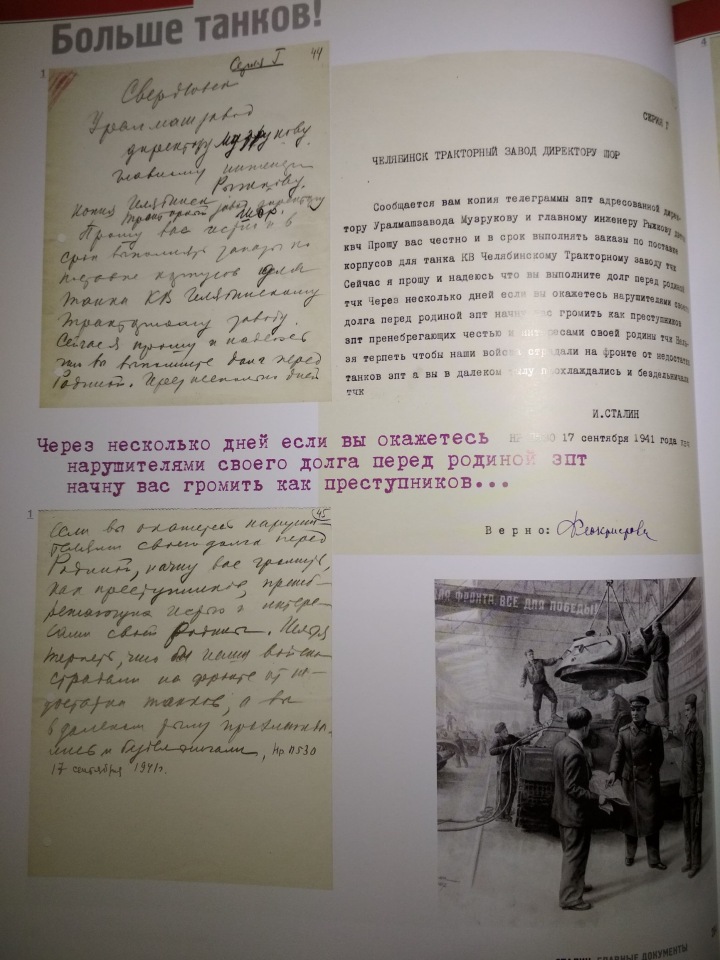 Больше танков!
1
44
Серия Г
Свердловск
Уралмашзавод
директору Музрукову
главному инженеру
Рыжкову.
Копия Челябинск
тракторный завод директору
Шор.
Прошу вас честно и в
срок выполнять заказы по
поставке корпусов для
танка КВ Челябинскому
тракторному заводу.
Сейчас я прошу и надеюсь
что вы выполните долг перед
Родиной. Через несколько дней
СЕРИЯ Г
ЧЕЛЯБИНСК ТРАКТОРНЫЙ ЗАВОД ДИРЕКТОРУ ШОР
Сообщается вам копия телеграммы зпт адресованной дирек-
тору Уралмашзавода Музрукову и главному инженеру Рыжкову
квч Прошу вас честно и в срок выполнять заказы по поставке
корпусов для танка КВ Челябинскому Тракторному заводу тчк
Сейчас я прошу и надеюсь что вы выполните долг перед родиной
тчк Через несколько дней если вы окажетесь нарушителями своего
долга перед родиной зпт начну вас громить как преступников
зпт пренебрегающих честью и интересами своей родины тчк Нель-
зя терпеть чтобы наши войска страдали на фронте от недостатка
танков зпт а вы в далеком тылу прохлаждались и бездельничали
тчк
И.СТАЛИН
17 сентября 1941 года
Верно:
Через несколько дней если вы окажетесь
нарушителями своего долга перед родиной зпт
начну вас громить как преступников...
1
45
если вы окажетесь наруши-
телями своего долга перед
Родиной, начну вас громить,
как преступников, пренеб-
регающих честью и интере-
сами своей Родины. Нельзя
терпеть, чтобы наши войска
страдали на фронте от не-
достатка танков, а вы
в далеком тылу прохлажда-
лись и бездельничали,
17 сентября 1941г.
ДЛЯ ФРОНТА ВСЕ ДЛЯ ПОБЕДЫ!
СТАЛИН ГЛАВНЫЕ ДОКУМЕНТЫ